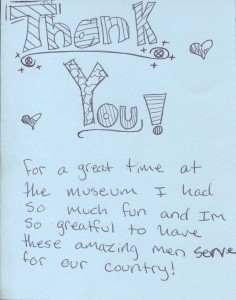 Thank
You!
for a great time at
the museum I had
so much fun and Im
so greatful to have
these amazing men serve
for our country!